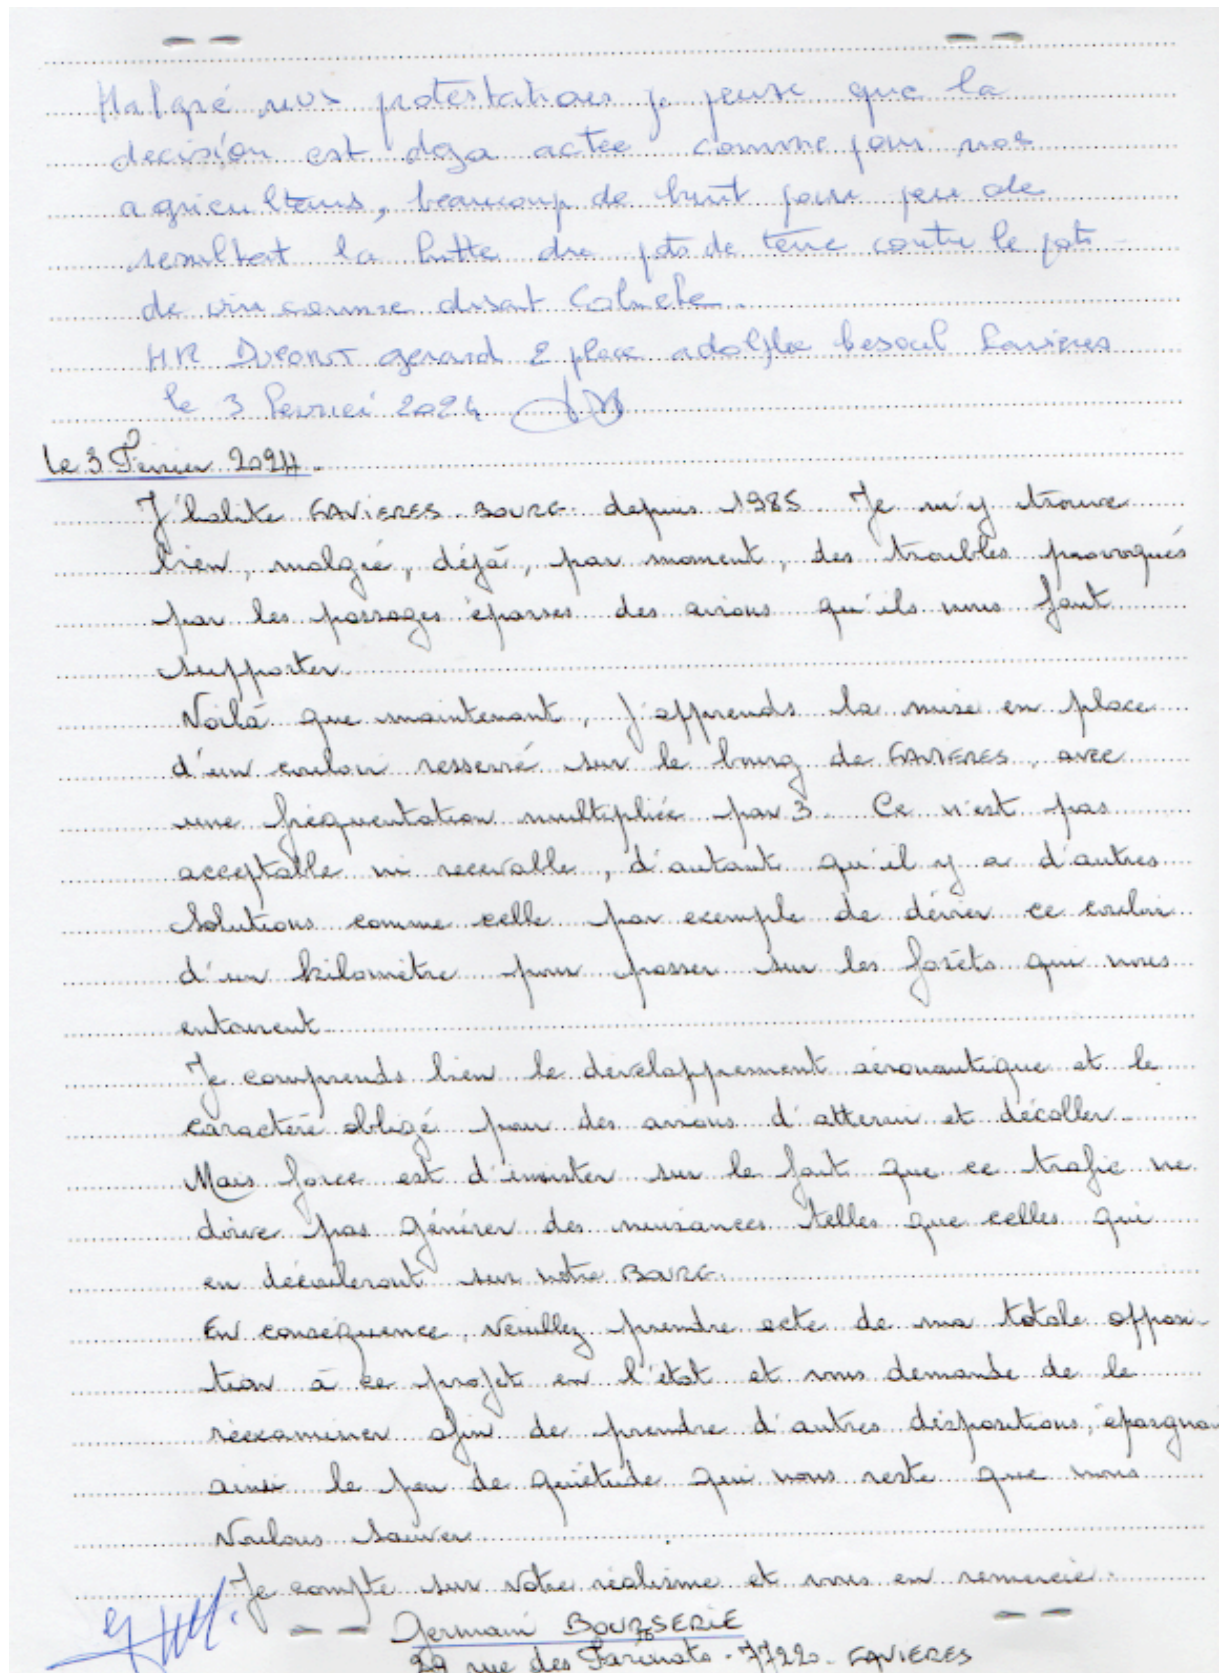 Malgré nos protestations je pense que la
decision est deja actee comme pour nos
agriculteurs, beaucoup de bruit pour peu de
resultat la lutte du pots de terre contre le pots
de vin comme disait Coluche.
MR DUPONT gerard 2 place adolphe besoul Favieres
le 3 Fevrier 2024
le 3 Fevrier 2024.
J'habite FAVIERES BOURG depuis 1985. Je m'y trouve
bien, malgré, déjà, par moment, des troubles provoqués
par les passages éparses des avions qu'ils nous faut
supporter.
Voilà que maintenant, j'apprends la mise en place
d'un couloir resserré sur le bourg de FAVIERES, avec
une fréquentation multipliée par 3. Ce n'est pas
acceptable ni recevable, d'autant qu'il y a d'autres
solutions comme celle par exemple de dévier ce couloir
d'un kilomètre pour passer sur les forêts qui nous
entourent.
Je comprends bien le développement aéronautique et le
caractère obligé pour des avions d'atterrir et décoller.
Mais force est d'insister sur le fait que ce trafic ne
doive pas générer des nuisances telles que celles qui
en découleront sur notre BOURG.
En conséquence, veuillez prendre acte de ma totale opposi-
tion à ce projet en l'état et vous demande de le
réexaminer afin de prendre d'autres dispositions, épargna
ainsi le peu de quiétude qui nous reste que nous
voulons sauver.
Je compte sur votre réalisme et vous en remercie.
Germain BOURSERIE
rue des - 77220. FAVIERES